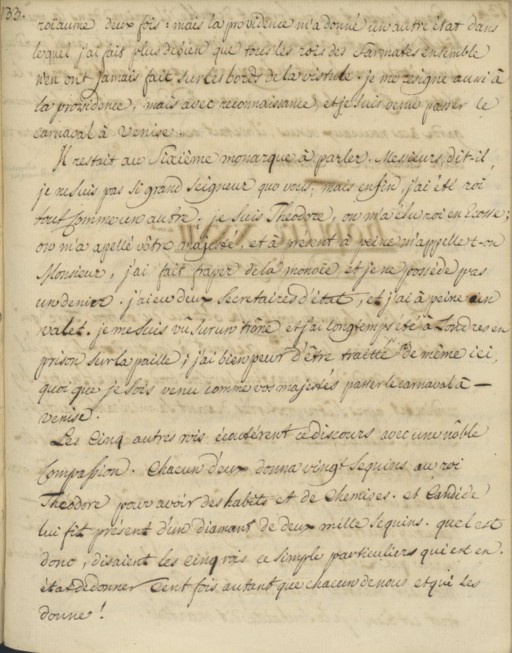 133.
roïaume deux fois : mais la providence m'a donné un autre état dans
lequel j'ai fait plus de bien que tous les rois des Sarmates ensemble
n'en ont jamais fait sur les bords de la vistule. je me résigne aussi à
la providence, mais avec reconnaissance, et je suis venu passer le
carnaval à Venise.
Il restait au Sixième monarque à parler. Messieurs, dit-il,
je ne suis pas si grand Seigneur que vous; mais enfin, j'ai été roi
tout comme un autre. je suis Théodore, on m'a élu roi en Ecosse;
on m'a apellé vôtre majesté, et à présent à peine m'appelle t-on
Monsieur, j'ai fait fraper de la monoie, et je ne possède pas
un denier. j'ai eu deux Secretaires d'état, et j'ai à peine un
valet. je me suis vû sur un trône et j'ai longtemps été à Londres en
prison sur la paille; j'ai bien peur d'être traitté de même ici,
quoi que je sois venu comme vos majestés passer le carnaval à —
venise.
Les Cinq autres rois écoutèrent ce discours avec une nôble
Compassion. Chacun d'eux donna vingt Sequins au roi
Théodore pour avoir des habits et de Chemises. et Candide
lui fit présent d'un diamant de deux mille Sequins. quel est
donc, disaient les cinq rois ce simple particuliers qui est en
état de donner Cent fois autant que chacun de nous et qui les
donne!